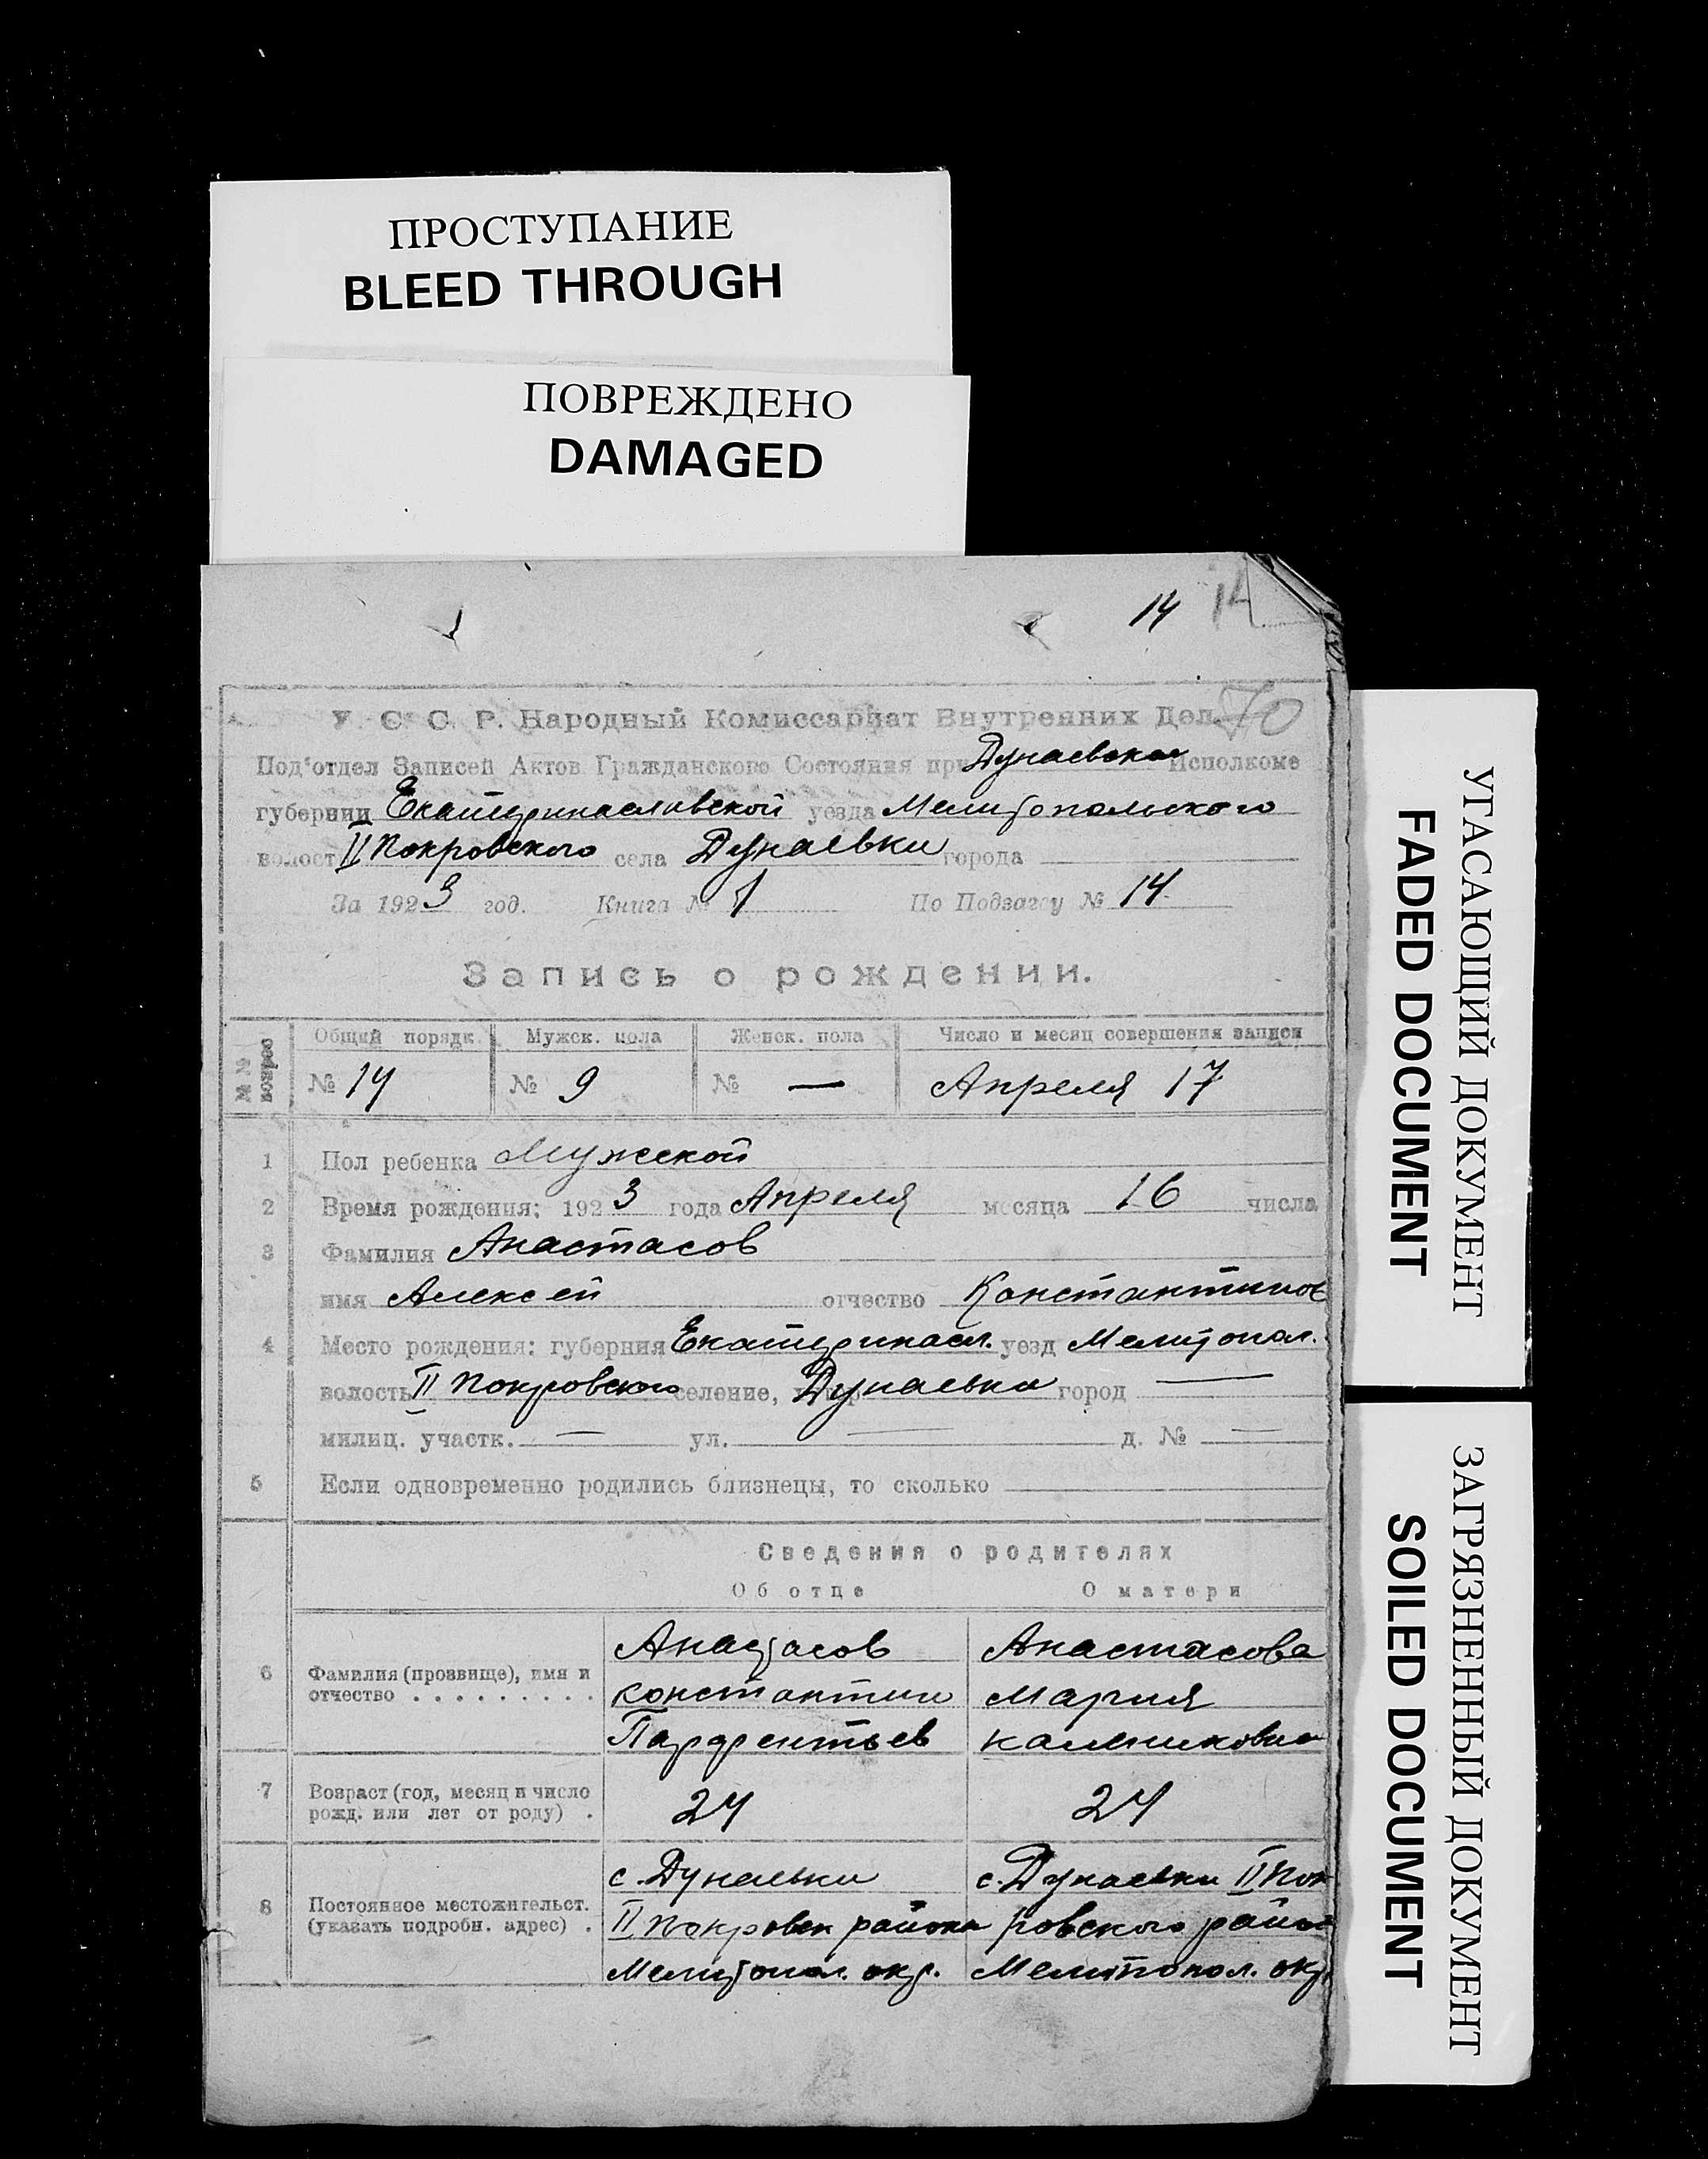 ПРОСТУПАНИЕ
BLEED THROUGH
ПОВРЕЖДЕНО
DAMAGED
14 14
70
У. С. С. Р. Народный Комиссариат Внутренних Дел.
Под'отдел Записей Актов Гражданского Состояния при Дунаевском Исполкоме
губернии Екатеринославской уезда Мелитопольского
волост II Покровского села Дунаевки города
За 1923 год. Книга № 1 По Подзагсу № 14.
Запись о рождении.
№№ записей Общий порядк. Мужск. пола Женск. пола Число и месяц совершения записи
№ 14 № 9 № — Апреля 17
1 Пол ребенка Мужской
2 Время рождения: 1923 года Апреля месяца 16 числа
3 Фамилия Анастасов
имя Алексей отчество Константинов
4 Место рождения: губерния Екатериносл. уезд Мелитопол.
волость II Покровского селение, Дунаевка город —
милиц. участк. — ул. — д. № —
5 Если одновременно родились близнецы, то сколько
Сведения о родителях
Об отце О матери
6 Фамилия (прозвище), имя и отчество . . . . . . . . . .
Анастасов
Константин
Парфентьев
Анастасова
Мария
Калениковна
7 Возраст (год, месяц и число рожд. или лет от роду) .
24 24
8 Постоянное местожительст. (указать подробн. адрес) .
с. Дунаевки
II Покровск района
Мелитопол. окр.
с. Дунаевки II Пок
ровского район
Мелитопол. окр.
УГАСАЮЩИЙ ДОКУМЕНТ
FADED DOCUMENT
ЗАГРЯЗНЕННЫЙ ДОКУМЕНТ
SOILED DOCUMENT